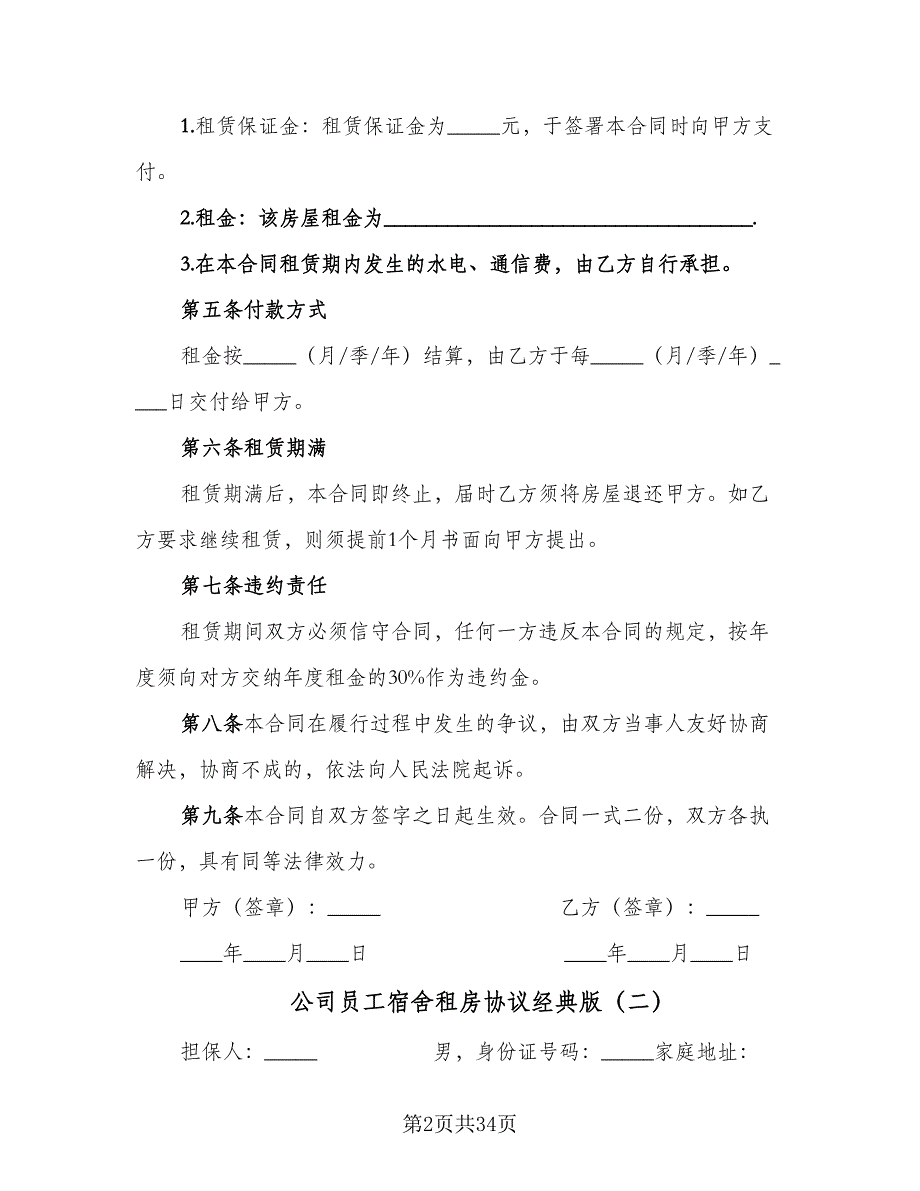 1.租赁保证金：租赁保证金为_____元，于签署本合同时向甲方支
付。
2.租金：该房屋租金为___________________________________.
3.在本合同租赁期内发生的水电、通信费，由乙方自行承担。
第五条付款方式
租金按_____（月/季/年）结算，由乙方于每_____（月/季/年）_
___日交付给甲方。
第六条租赁期满
租赁期满后，本合同即终止，届时乙方须将房屋退还甲方。如乙
方要求继续租赁，则须提前1个月书面向甲方提出。
第七条违约责任
租赁期间双方必须信守合同，任何一方违反本合同的规定，按年
度须向对方交纳年度租金的30%作为违约金。
第八条本合同在履行过程中发生的争议，由双方当事人友好协商
解决，协商不成的，依法向人民法院起诉。
第九条本合同自双方签字之日起生效。合同一式二份，双方各执
一份，具有同等法律效力。
甲方（签章）：_____ 乙方（签章）：_____
____年____月____日 ____年____月____日
公司员工宿舍租房协议经典版（二）
担保人：_____ 男，身份证号码：_____家庭地址：
第2页共34页